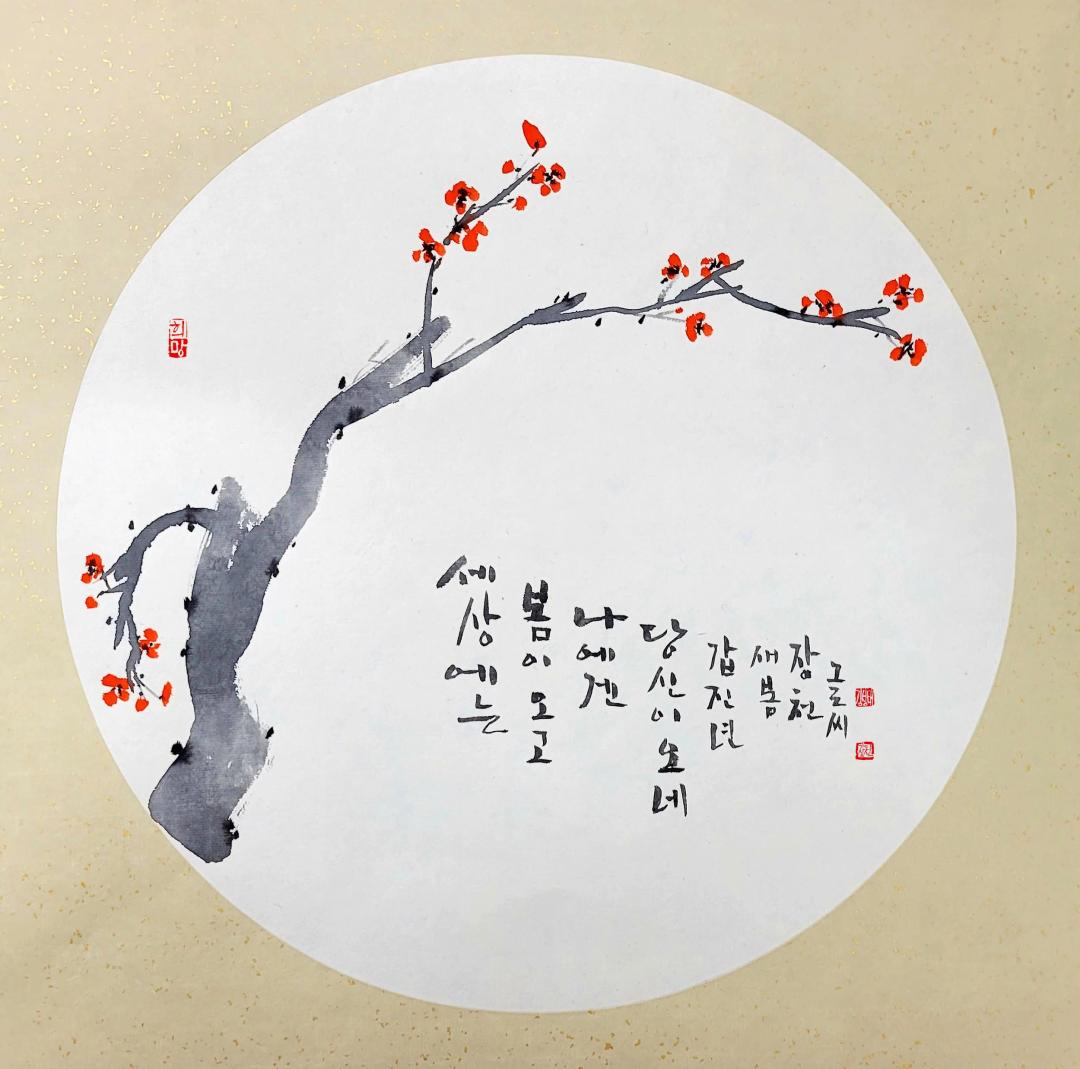 세상에는
봄이 오고
나에겐
당신이 오네
갑진년
새봄
장천
글씨
희망